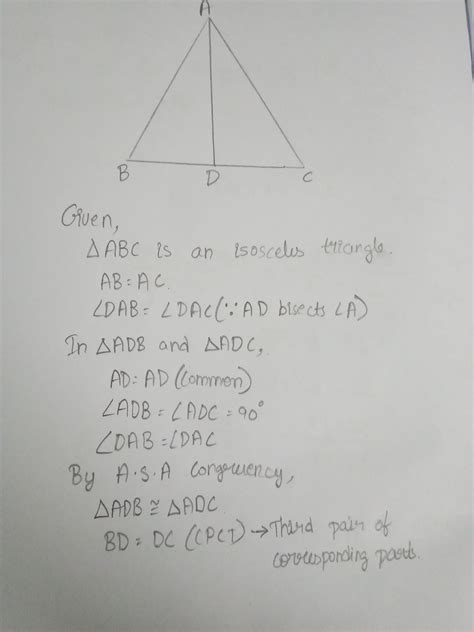 A
B D C
Given,
△ABC is an isoscelus triangle.
AB = AC.
∠DAB = ∠DAC (∵ AD bisects ∠A)
In △ADB and △ADC,
AD = AD (Common)
∠ADB = ∠ADC = 90°
∠DAB = ∠DAC
By A.S.A Congruency,
△ADB ≅ △ADC.
BD = DC (CPCT) → Third pair of
corresponding parts.